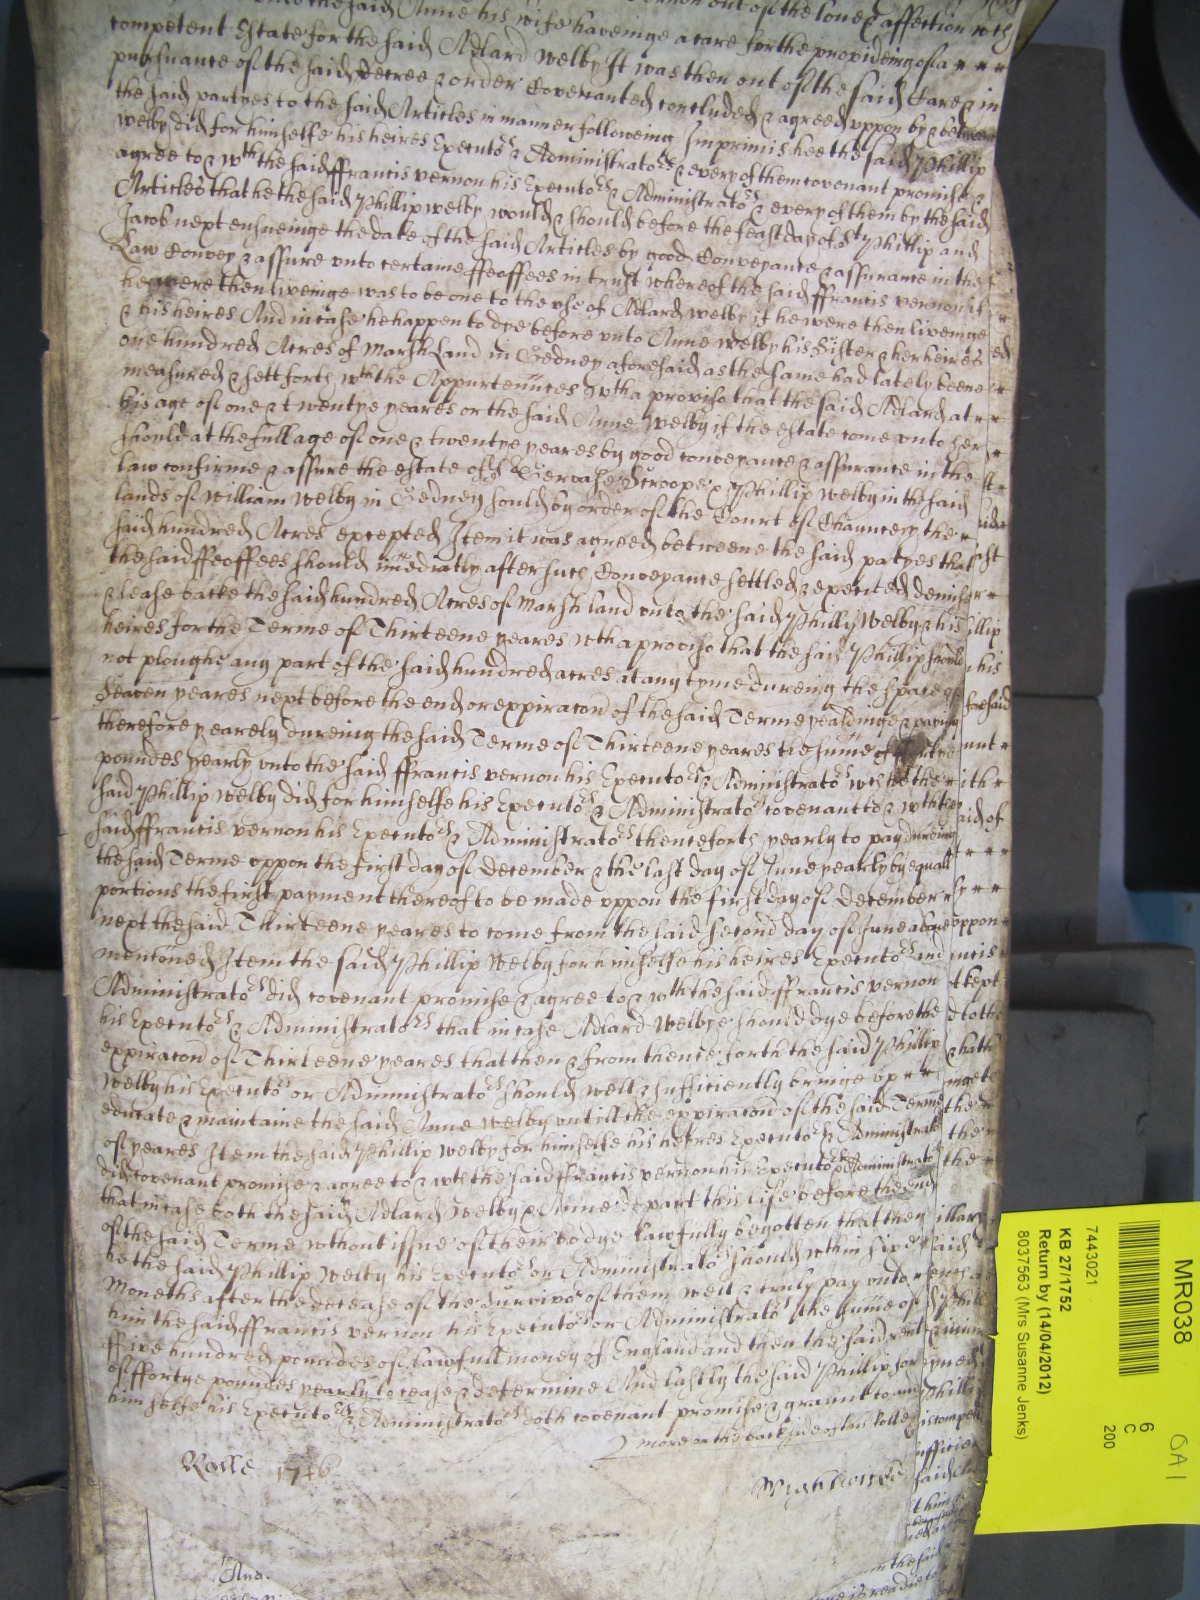 unto the said Anne his wife haveinge a care for the provideing of a
competent Estate for the said Adlard Welby It was then out of the said Care & in
pursuance of the said decree & order Covenanted concluded & agreed uppon by & betweene
the said partyes to the said Articles in manner followeing Imprimis hee the said Phillip
Welby did for himselfe his heires Executors & Administrators & every of them covenant promise &
agree to & wth the said ffrancis vernon his Executors & Administrators & every of them by the said
Articles that he the said Phillip welby would & should before the feast day of St Phillip and
Jacob next ensueinge the date of the said Articles by good Conveyance & assurance in the
Law Convey & assure unto certaine ffeoffees in trust whereof the said ffrancis vernon if
he were then liveinge was to be one to the use of Adlard welby if he were then liveinge
& his heires And in case he happen to dye before unto Anne welby his Sister & her heires
one hundred Acres of Marsh Land in Gedney aforesaid as the same had lately beene
measured & sett forth wth the Appurtennces wth a proviso that the said Adlard at
his age of one & twentye yeares or the said Anne Welby if the estate come unto her
should at the full age of one & twentye yeares by good conveyance & assurance in the
law confirme & assure the estate of Sr Gervase Scroope & Phillip Welby in the said
lands of William Welby in Gedney should by order of the Court of Chauncery the
said hundred Acres excepted Item it was agreed betweene the said patyes that
the said ffeoffees should imediatly after such Conveyance settled & executed demise
& lease backe the said hundred Acres of Marsh land unto the said Phillip Welby & his
heires for the Terme of Thirteene yeares wth a proviso that the said Phillip should
not ploughe any part of the said hundred acres at any tyme dureing the space of
Seaven yeares next before the end or expiracon of the said Terme yealdinge & paying
therefore yearely dureing the said Terme of Thirteene yeares the sume of ffortye
poundes yearly unto the said ffrancis vernon his Executors & Administrators wch hee the
said Phillip Welby did for himselfe his Executors & Administrators covenant to & wth the
said ffrancis vernon his Executors & Administrators thenceforth yearly to pay dureing
the said Terme uppon the first day of December & the last day of June yearly by equall
portions the first payment thereof to be made uppon the first day of December
next the said Thirteene yeares to come from the said second day of June above
mentioned Item the said Phillip Welby for himselfe his heires Executors and
Administrators did covenant promise & agree to & wth the said ffrancis vernon
his Executors & Administrators that in case Adlard Welbye should dye before the
expiracon of Thirteene yeares that then & from thence forth the said Phillip
Welby his Executors or Administrators should well & sufficiently bringe up
educate & maintaine the said Anne Welby untill the expiracon of the said Terme
of yeares Item the said Phillip Welby for himselfe his heires Executors & Administrators
did covenant promise & agree to & wth the said ffrancis vernon his Executors & Administrators
that in case both the said Adlard Welby & Anne depart this life before the end
of the said Terme without issue of their bodye lawfully begotten that then
he the said Phillip Welby his Executors or Administrators should wthin sixe
Moneths after the decease of the Survivor of them well & truly pay unto
him the said ffrancis vernon his Executors or Administrators the sume of
ffive hundred poundes of lawfull money of England and then the said rent
of ffortye poundes yearly to cease & determine And lastly the said Phillip for
himselfe his Executors & Administrators doth covenant promise & grannt to and
more on the backside of this Rolle
Rolle 1746
And.
MR038
6
C
200
7443021
KB 27/1752
Return by (14/04/2012)
8037563 (Mrs Susanne Jenks)